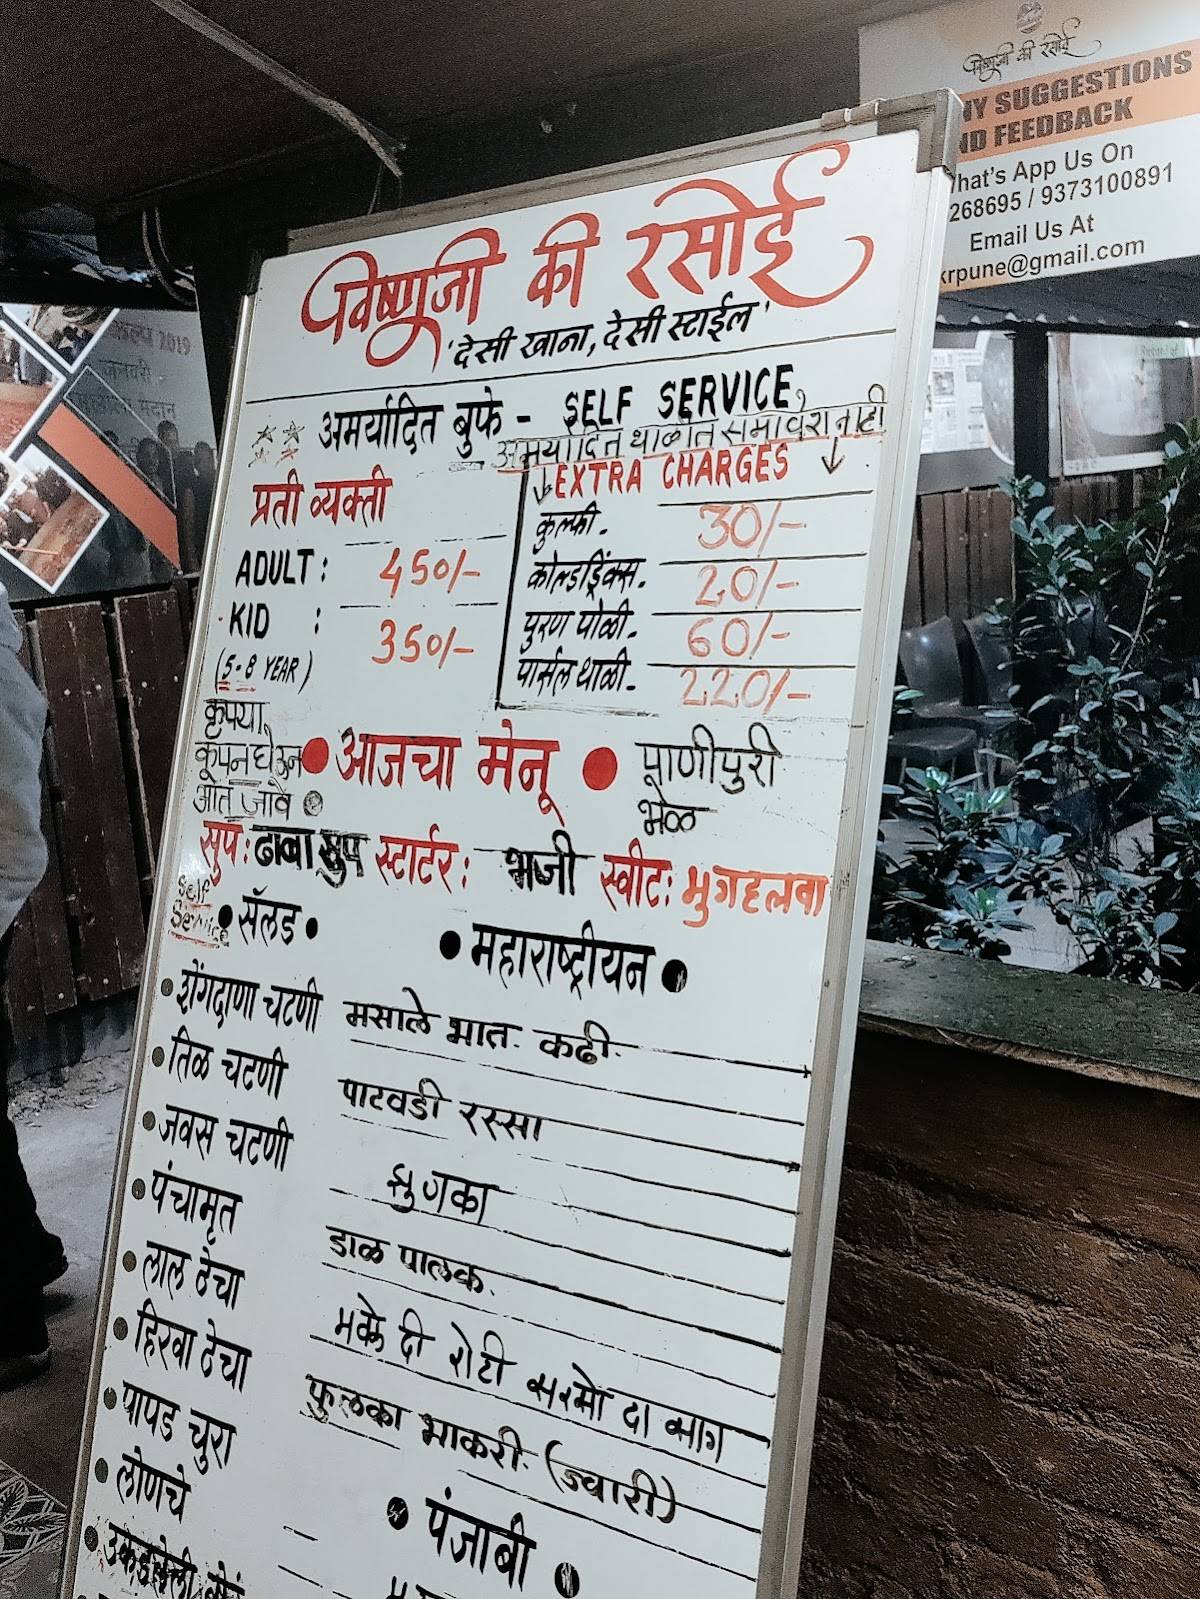 विष्णुजी की रसोई
NY SUGGESTIONS
ND FEEDBACK
hat's App Us On
268695 / 9373100891
Email Us At
krpune@gmail.com
विष्णुजी की रसोई
'देसी खाना, देसी स्टाईल'
अमर्यादित बुफे - SELF SERVICE,
अमर्यादित थाळीत समावेश नाही
प्रती व्यक्ती
ADULT: 450/-
KID : 350/-
(5-8 YEAR)
EXTRA CHARGES
कुल्फी. 30/-
कोल्डड्रिंक्स. 20/-
पुरण पोळी. 60/-
पार्सल थाळी. 220/-
कृपया
कूपन घेऊन
आत जावे
आजचा मेनू
पाणीपुरी
भेळ
सुप: ढाबा सुप स्टार्टर: भजी स्वीट: मुगहलवा
Self
Service
सॅलड
शेंगदाणा चटणी
तिळ चटणी
जवस चटणी
पंचामृत
लाल ठेचा
हिरवा ठेचा
पापड चुरा
लोणचे
उकडलेली
महाराष्ट्रीयन
मसाले भात. कढी.
पाटवडी रस्सा
झुणका
डाळ पालक.
मक्के दी रोटी सरसो दा साग
फुलका भाकरी. (ज्वारी)
पंजाबी
2019
जनवरी